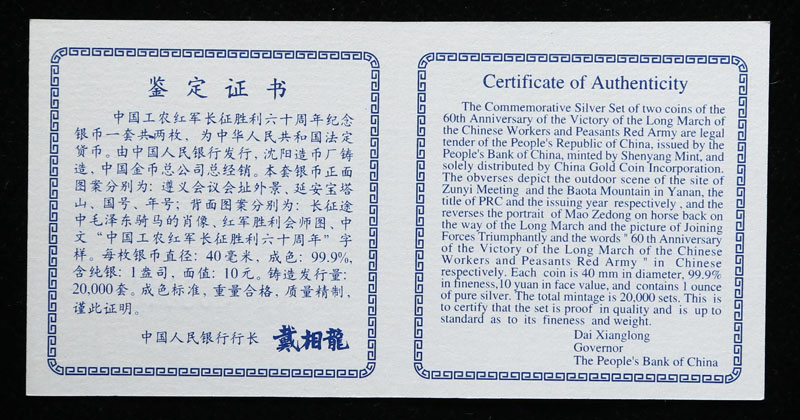 鉴定证书
中国工农红军长征胜利六十周年纪念
银币一套共两枚，为中华人民共和国法定
货币。由中国人民银行发行，沈阳造币厂铸
造，中国金币总公司总经销。本套银币正面
图案分别为：遵义会议会址外景、延安宝塔
山、国号、年号；背面图案分别为：长征途
中毛泽东骑马的肖像、红军胜利会师图、中
文“中国工农红军长征胜利六十周年”字
样。每枚银币直径：40毫米，成色：99.9%，
含纯银：1盎司，面值：10元。铸造发行量：
20,000套。成色标准，重量合格，质量精制，
谨此证明。
中国人民银行行长 戴相龍
Certificate of Authenticity
The Commemorative Silver Set of two coins of the
60th Anniversary of the Victory of the Long March of
the Chinese Workers and Peasants Red Army are legal
tender of the People's Republic of China, issued by the
People's Bank of China, minted by Shenyang Mint, and
solely distributed by China Gold Coin Incorporation.
The obverses depict the outdoor scene of the site of
Zunyi Meeting and the Baota Mountain in Yanan, the
title of PRC and the issuing year respectively , and the
reverses the portrait of Mao Zedong on horse back on
the way of the Long March and the picture of Joining
Forces Triumphantly and the words " 60 th Anniversary
of the Victory of the Long March of the Chinese
Workers and Peasants Red Army " in Chinese
respectively. Each coin is 40 mm in diameter, 99.9%
in fineness,10 yuan in face value, and contains 1 ounce
of pure silver. The total mintage is 20,000 sets. This is
to certify that the set is proof in quality and is up to
standard as to its fineness and weight.
Dai Xianglong
Governor
The People's Bank of China